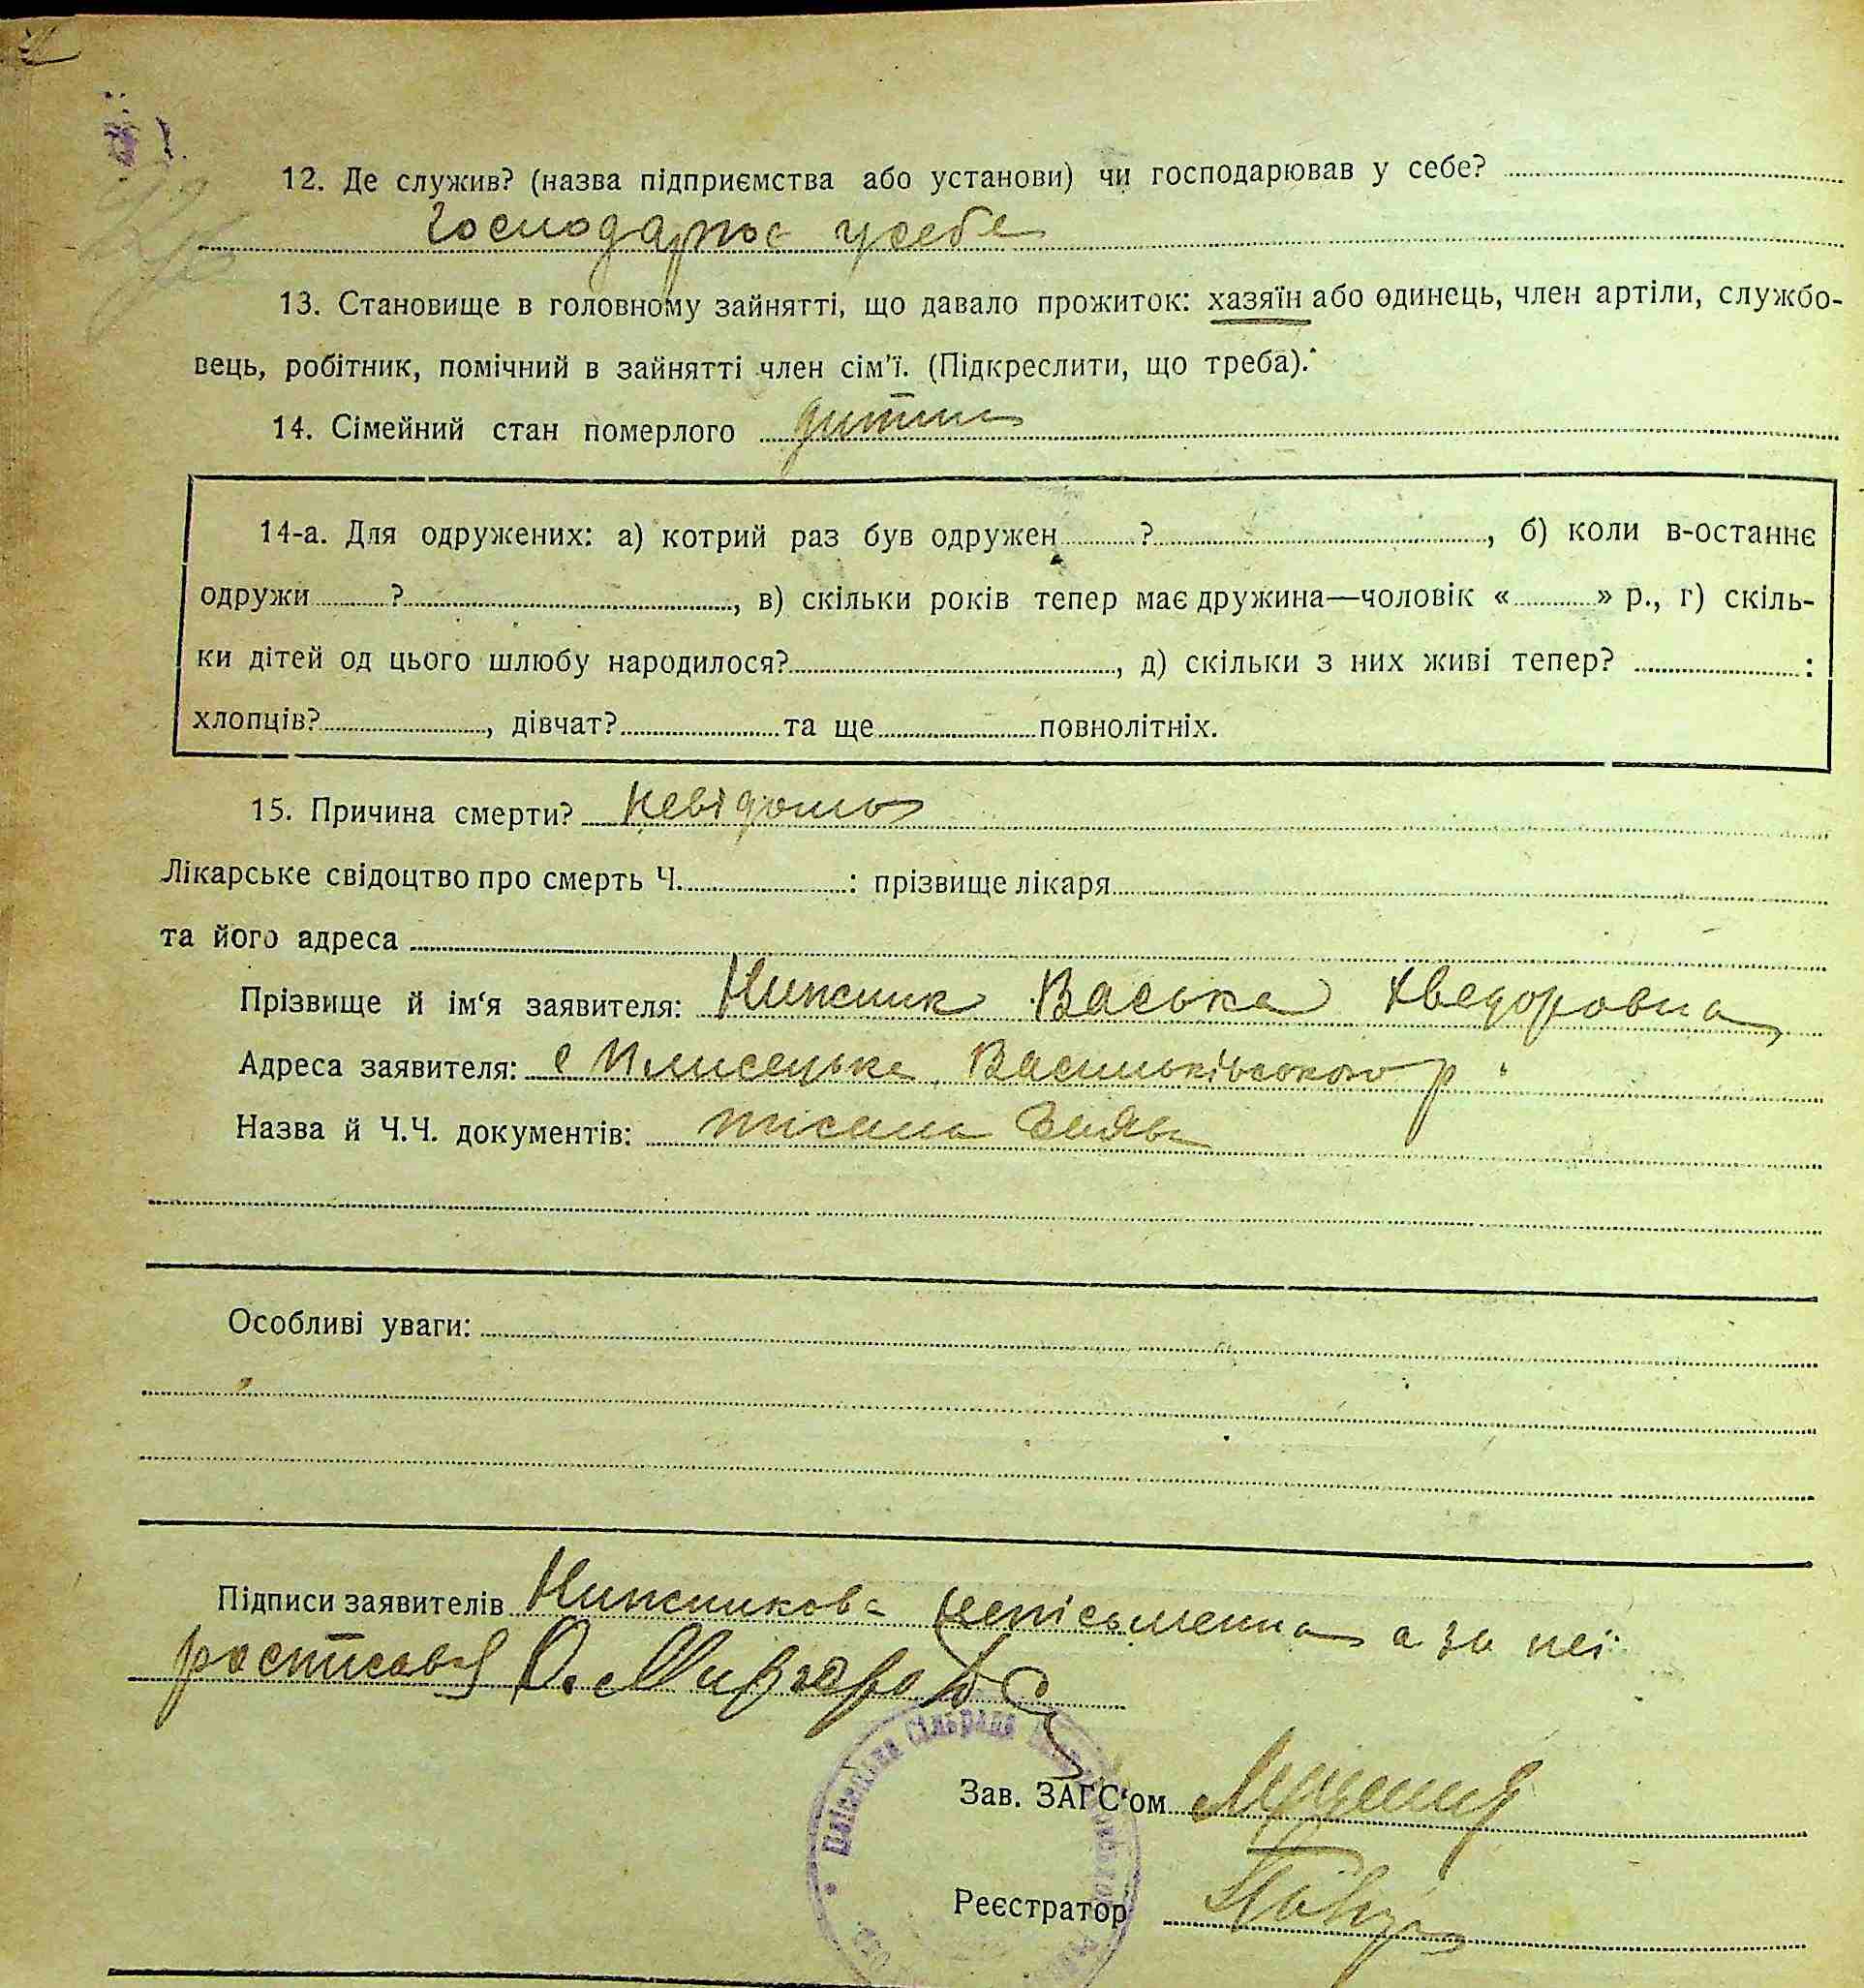 12. Де служив? (назва підприємства або установи) чи господарював у себе?
Господарює усебе
13. Становище в головному зайнятті, що давало прожиток: хазяїн або одинець, член артіли, службо-
вець, робітник, помічний в зайнятті член сім'ї. (Підкреслити, що треба).
14. Сімейний стан померлого дитина
14-а. Для одружених: а) котрий раз був одружен ? , б) коли в-останнє
одружи ? , в) скільки років тепер має дружина—чоловік « » р., г) скіль-
ки дітей од цього шлюбу народилося? , д) скільки з них живі тепер? :
хлопців? , дівчат? та ще повнолітніх.
15. Причина смерти? невідома
Лікарське свідоцтво про смерть Ч. : прізвище лікаря
та його адреса
Прізвище й ім'я заявителя: Нижник Васька Хведоровна
Адреса заявителя: с Плисецьке Васильківського р
Назва й Ч.Ч. документів: писана заява
Особливі уваги:
Підписи заявителів Нижникова неписьменна а за неї
росписався О.
Плісецька сільрада
Зав. ЗАГС'ом
Реєстратор